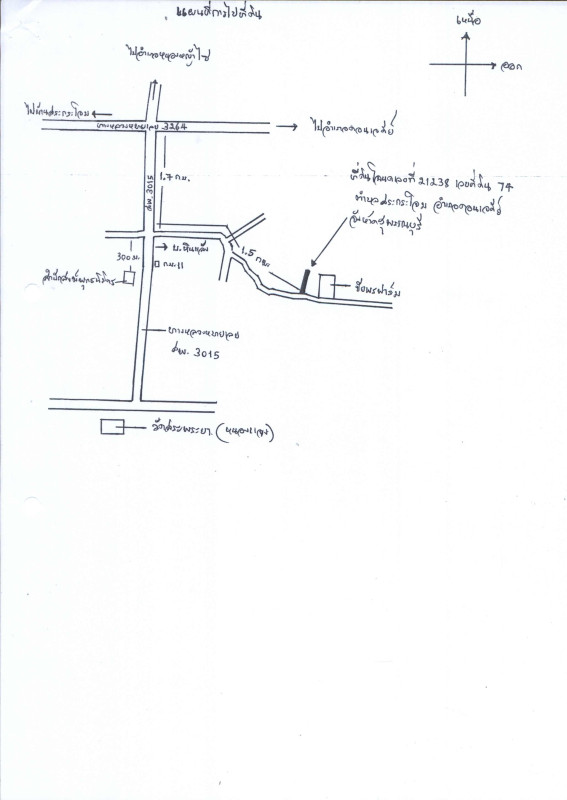 แผนที่การไปที่ดิน
เหนือ
ออก
ไปอำเภอหนองหญ้าไซ
ไปบ้านสระกระโจม
ทางหลวงหมายเลข 3264
ไปอำเภอดอนเจดีย์
1.7 กม.
สพ. 3015
ที่ดินโฉนดเลขที่ 21238 เลขที่ดิน 74
ตำบลสระกระโจม อำเภอดอนเจดีย์
จังหวัดสุพรรณบุรี
300 ม.
บ.หินแล้ง
กม.11
1.5 กม.
ชัยพรฟาร์ม
ทางหลวงหมายเลข
สพ. 3015
วัดสระพระยา (หนองแขม)